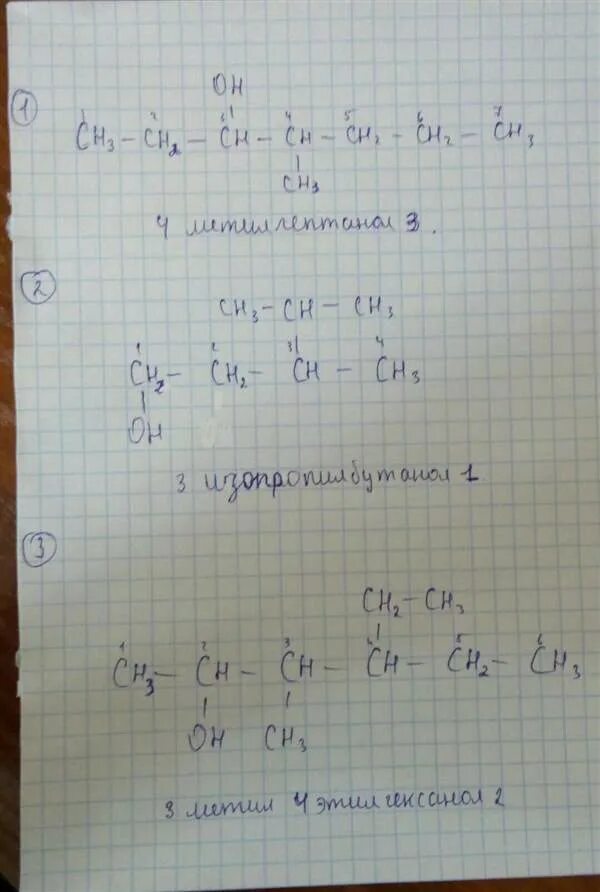 1
OH
1 2 3 4 5 6 7
CH₃ – CH₂ – CH – CH – CH₂ – CH₂ – CH₃
CH₃
4 метилгептанол 3.
2
CH₃ – CH – CH₃
1 2 3 4
CH₂ – CH₂ – CH – CH₃
OH
3 изопропилбутанол 1
3
CH₂ – CH₃
1 2 3 4 5 6
CH₃ – CH – CH – CH – CH₂ – CH₃
OH CH₃
3 метил 4 этилгексанол 2